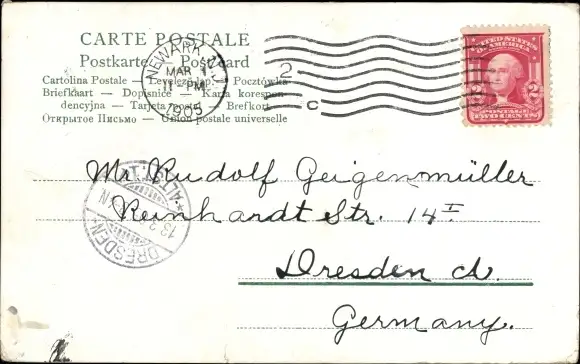 CARTE POSTALE
Postkarte — Post card
Cartolina Postale — Levelező-lap — Pocztówka
Briefkaart — Dopisnice — Karta korespon-
dencyjna — Tarjeta postal — Brefkort
Открытое Письмо — Union postale universelle
NEWARK, N.J.
MAR 1
11 - PM
1905
2
C
UNITED STATES
OF AMERICA
2 2
POSTAGE
TWO CENTS
Mr. Rudolf Geigenmüller
Reinhardt Str. 14 I
Dresden
Germany.
DRESDEN
ALTST.